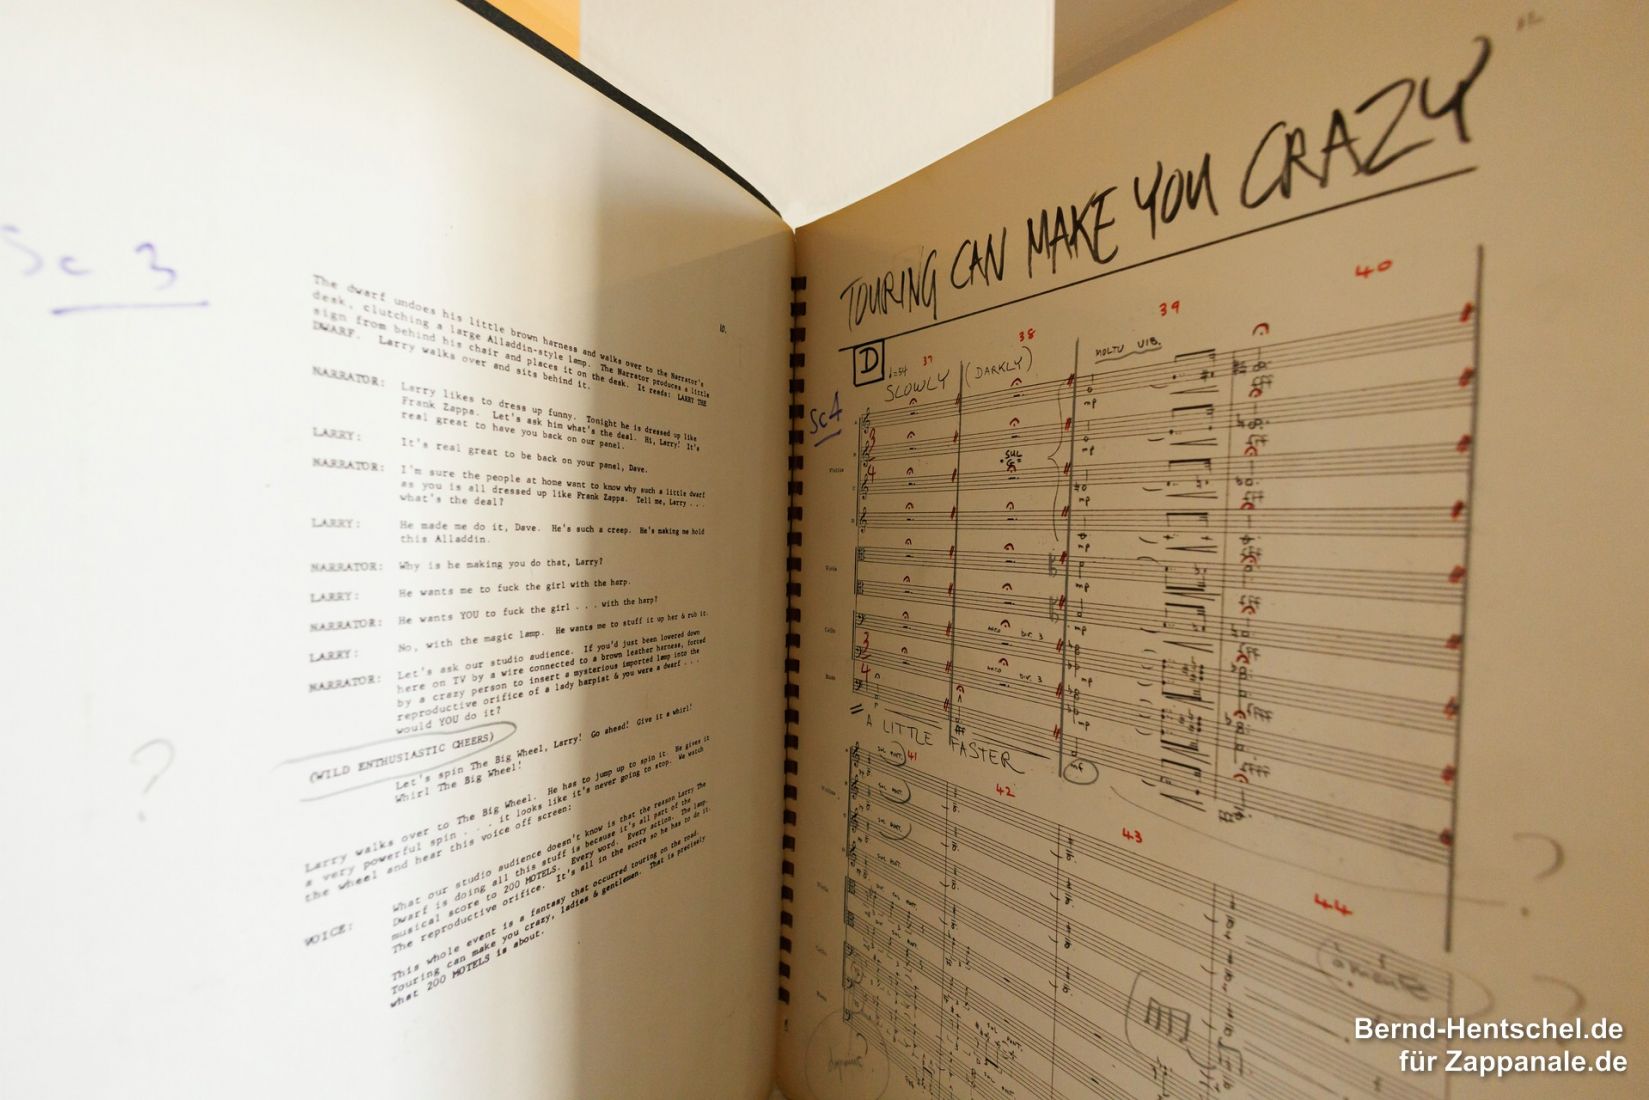 Sc 3
10.
The dwarf undoes his little brown harness and walks over to the Narrator's
desk, clutching a large Alladdin-style lamp. The Narrator produces a little
sign from behind his chair and places it on the desk. It reads: LARRY THE
DWARF. Larry walks over and sits behind it.
NARRATOR: Larry likes to dress up funny. Tonight he is dressed up like
Frank Zappa. Let's ask him what's the deal. Hi, Larry! It's
real great to have you back on our panel.
LARRY: It's real great to be back on your panel, Dave.
NARRATOR: I'm sure the people at home want to know why such a little dwarf
as you is all dressed up like Frank Zappa. Tell me, Larry . . .
what's the deal?
LARRY: He made me do it, Dave. He's such a creep. He's making me hold
this Alladdin.
NARRATOR: Why is he making you do that, Larry?
LARRY: He wants me to fuck the girl with the harp.
NARRATOR: He wants YOU to fuck the girl . . . with the harp?
LARRY: No, with the magic lamp. He wants me to stuff it up her & rub it.
NARRATOR: Let's ask our studio audience. If you'd just been lowered down
here on TV by a wire connected to a brown leather harness, forced
by a crazy person to insert a mysterious imported lamp into the
reproductive orifice of a lady harpist & you were a dwarf . . .
would YOU do it?
(WILD ENTHUSIASTIC CHEERS)
Let's spin The Big Wheel, Larry! Go ahead! Give it a whirl!
Whirl The Big Wheel!
?
Larry walks over to The Big Wheel. He has to jump up to spin it. He gives it
a very powerful spin . . . it looks like it's never going to stop. We watch
the wheel and hear this voice off screen:
VOICE: What our studio audience doesn't know is that the reason Larry The
Dwarf is doing all this stuff is because it's all part of the
musical score to 200 MOTELS. Every word. Every action. The lamp.
The reproductive orifice. It's all in the score so he has to do it.
This whole event is a fantasy that occurred touring on the road.
Touring can make you crazy, ladies & gentlemen. That is precisely
what 200 MOTELS is about.
TOURING CAN MAKE YOU CRAZY
D
37 38 39 40
SLOWLY (DARKLY) MOLTO VIB.
Sc 4
A LITTLE FASTER
41 42 43 44
?
?
Bernd-Hentschel.de
für Zappanale.de